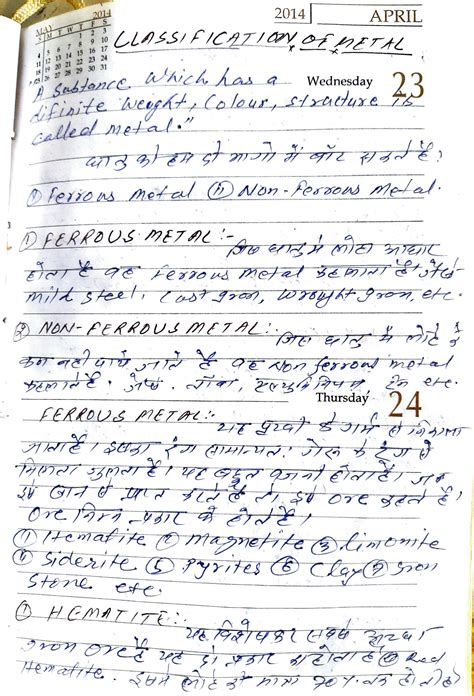 MAY 2014
2014 APRIL
CLASSIFICATION OF METAL
A Substance which has a Wednesday 23
difinite weight, Colour, structure is
called metal."
धातु को हम दो भागो में बाँट सकते है।
① Ferrous Metal ② Non-Ferrous Metal.
① FERROUS METAL :-
जिस धातु में लोहा आधार
होता है वह Ferrous metal कहलाता है। जैसे-
mild steel, Cast Iron, Wrought Iron, etc.
② NON-FERROUS METAL :-
जिस धातु में लोहे के
कण नही पाये जाते है वह Non ferrous metal
कहलाते है। जैसे- ताँबा, एल्युमिनियम, etc.
Thursday 24
FERROUS METAL:-
यह पृथ्वी के गर्भ से निकाला
जाता है। इसका रंग सामान्यतः के रंग से
मिलता जुलता है। यह बहुत वजनी होता है। जब
इसे खान से प्राप्त करते है तो इसे ore कहते है।
Ore निम्न प्रकार के होते है।
① Hematite ② Magnetite ③ limonite
④ Siderite ⑤ Pyrites ⑥ Clay ⑦ Iron
Stone etc.
① HEMATITE :-
यह सबसे अच्छा
Iron Ore है यह दो प्रकार का होता है ① Red
Hematite. इसमे लोहे की मात्रा 70% तक होती है।